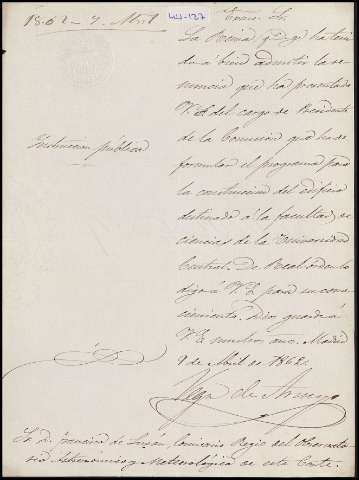 1862 - 9 Abril
Excmo. Sr.
La Reina q. D. g. ha teni-
do a bien admitir la re-
nuncia que ha presentado
V.E. del cargo de Presidente
de la Comision que ha de
formular el programa para
la construccion del edificio
destinado á la facultad de
ciencias de la Universidad
Central. De Real orden lo
digo á V.E. para su cono-
cimiento. Dios guarde á
V.E. muchos años. Madrid
9 de Abril de 1862.
Vega de Armijo
Instruccion pública
Sr. D. Francisco de Luxan, Comisario Regio del Observato-
rio Astronómico y Meteorológico de esta Corte.